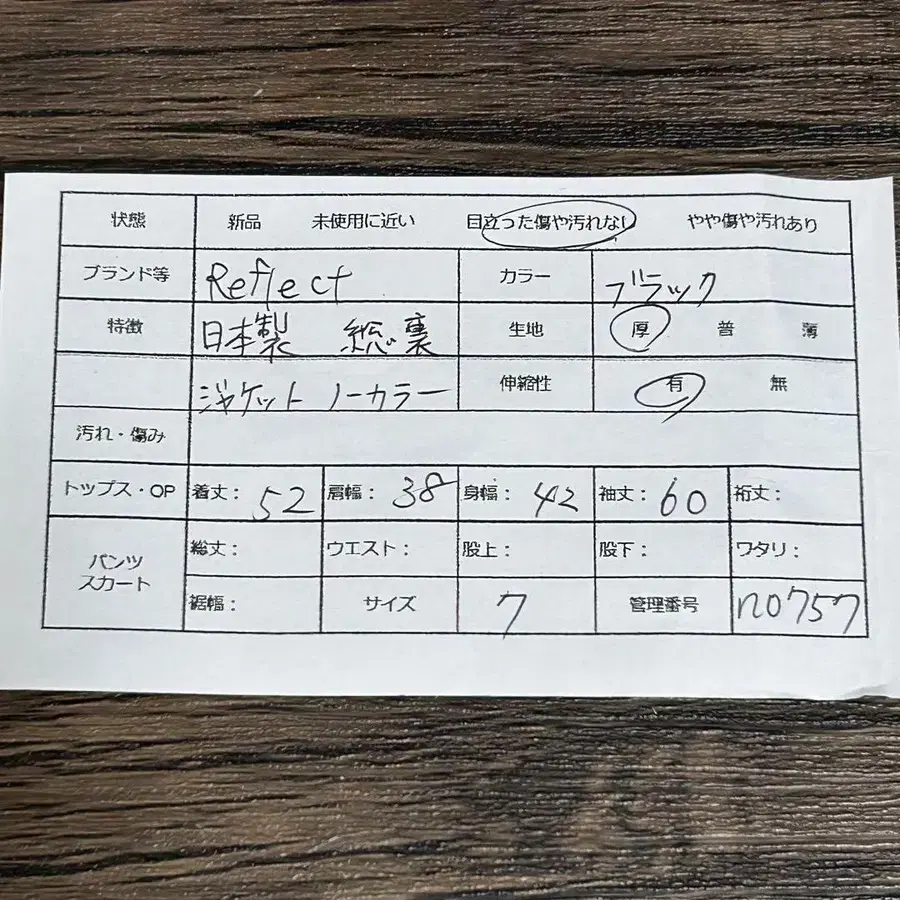 状態 新品 未使用に近い 目立った傷や汚れなし やや傷や汚れあり
ブランド等 Reflect カラー ブラック
特徴 日本製 総裏 生地 厚 普 薄
ジャケット ノーカラー 伸縮性 有 無
汚れ・傷み
トップス・OP 着丈: 52 肩幅: 38 身幅: 42 袖丈: 60 裄丈:
パンツ スカート 総丈: ウエスト: 股上: 股下: ワタリ:
裾幅: サイズ 7 管理番号 no757